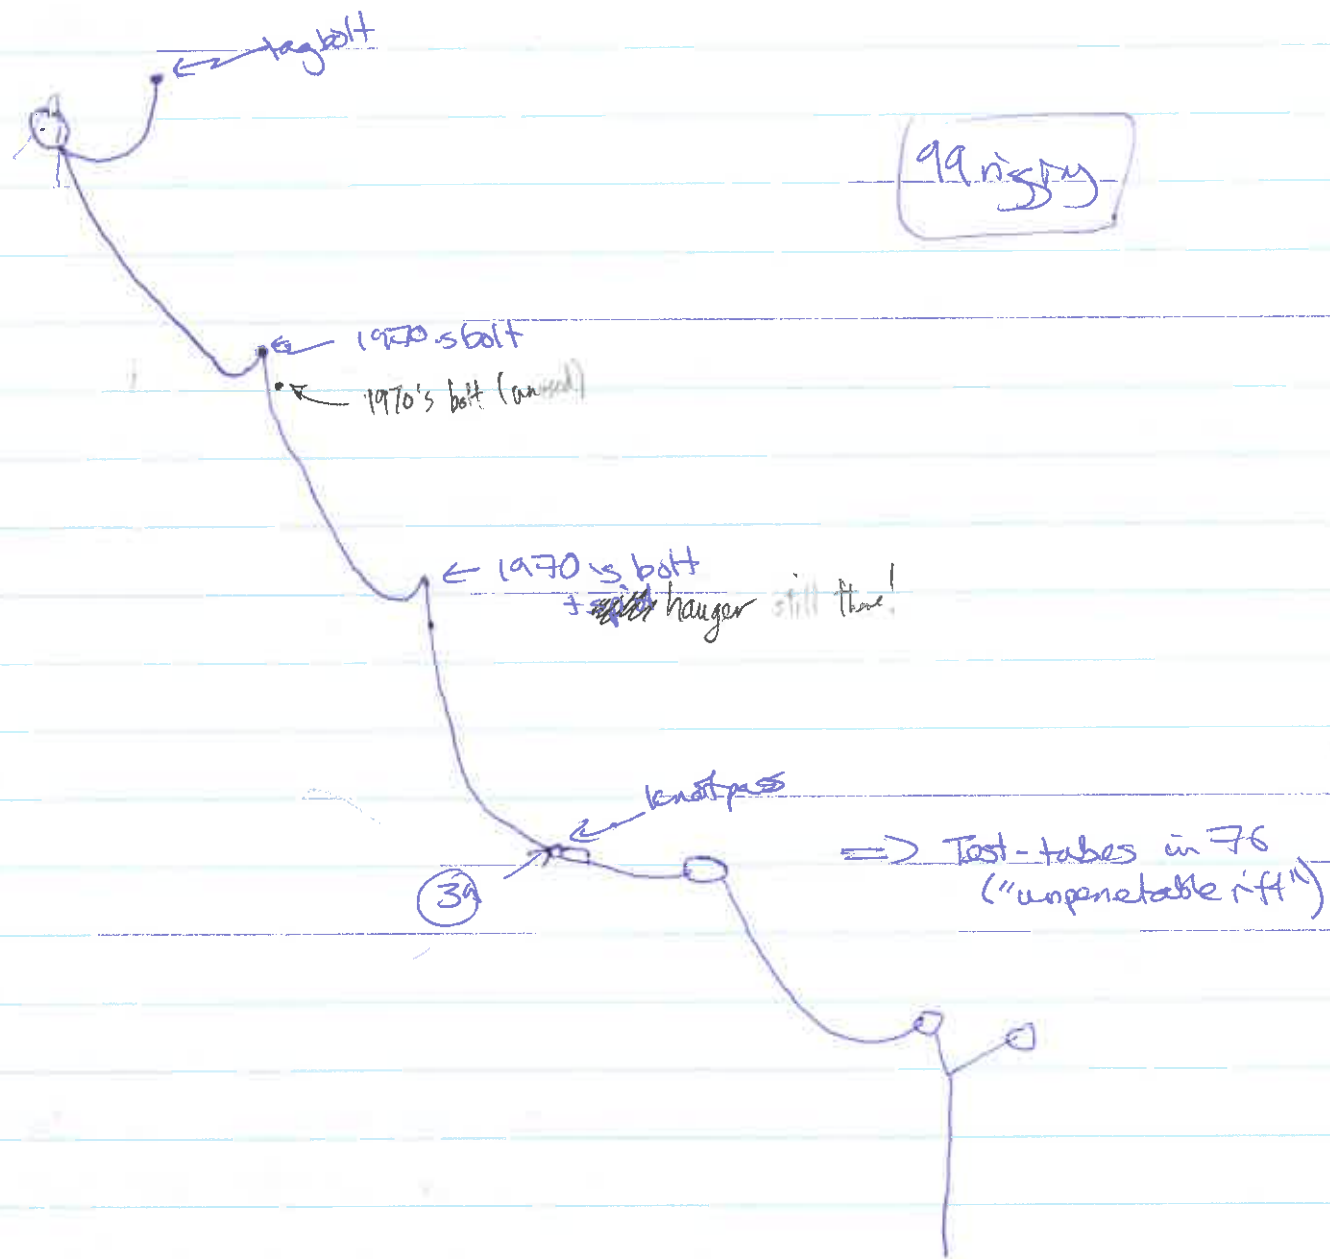 tagbolt
99 rigging
1970's bolt
1970's bolt (unused)
1970's bolt
+ hanger still there!
knotpass
39
=> Test-tubes in 76
("unpenetable rift")